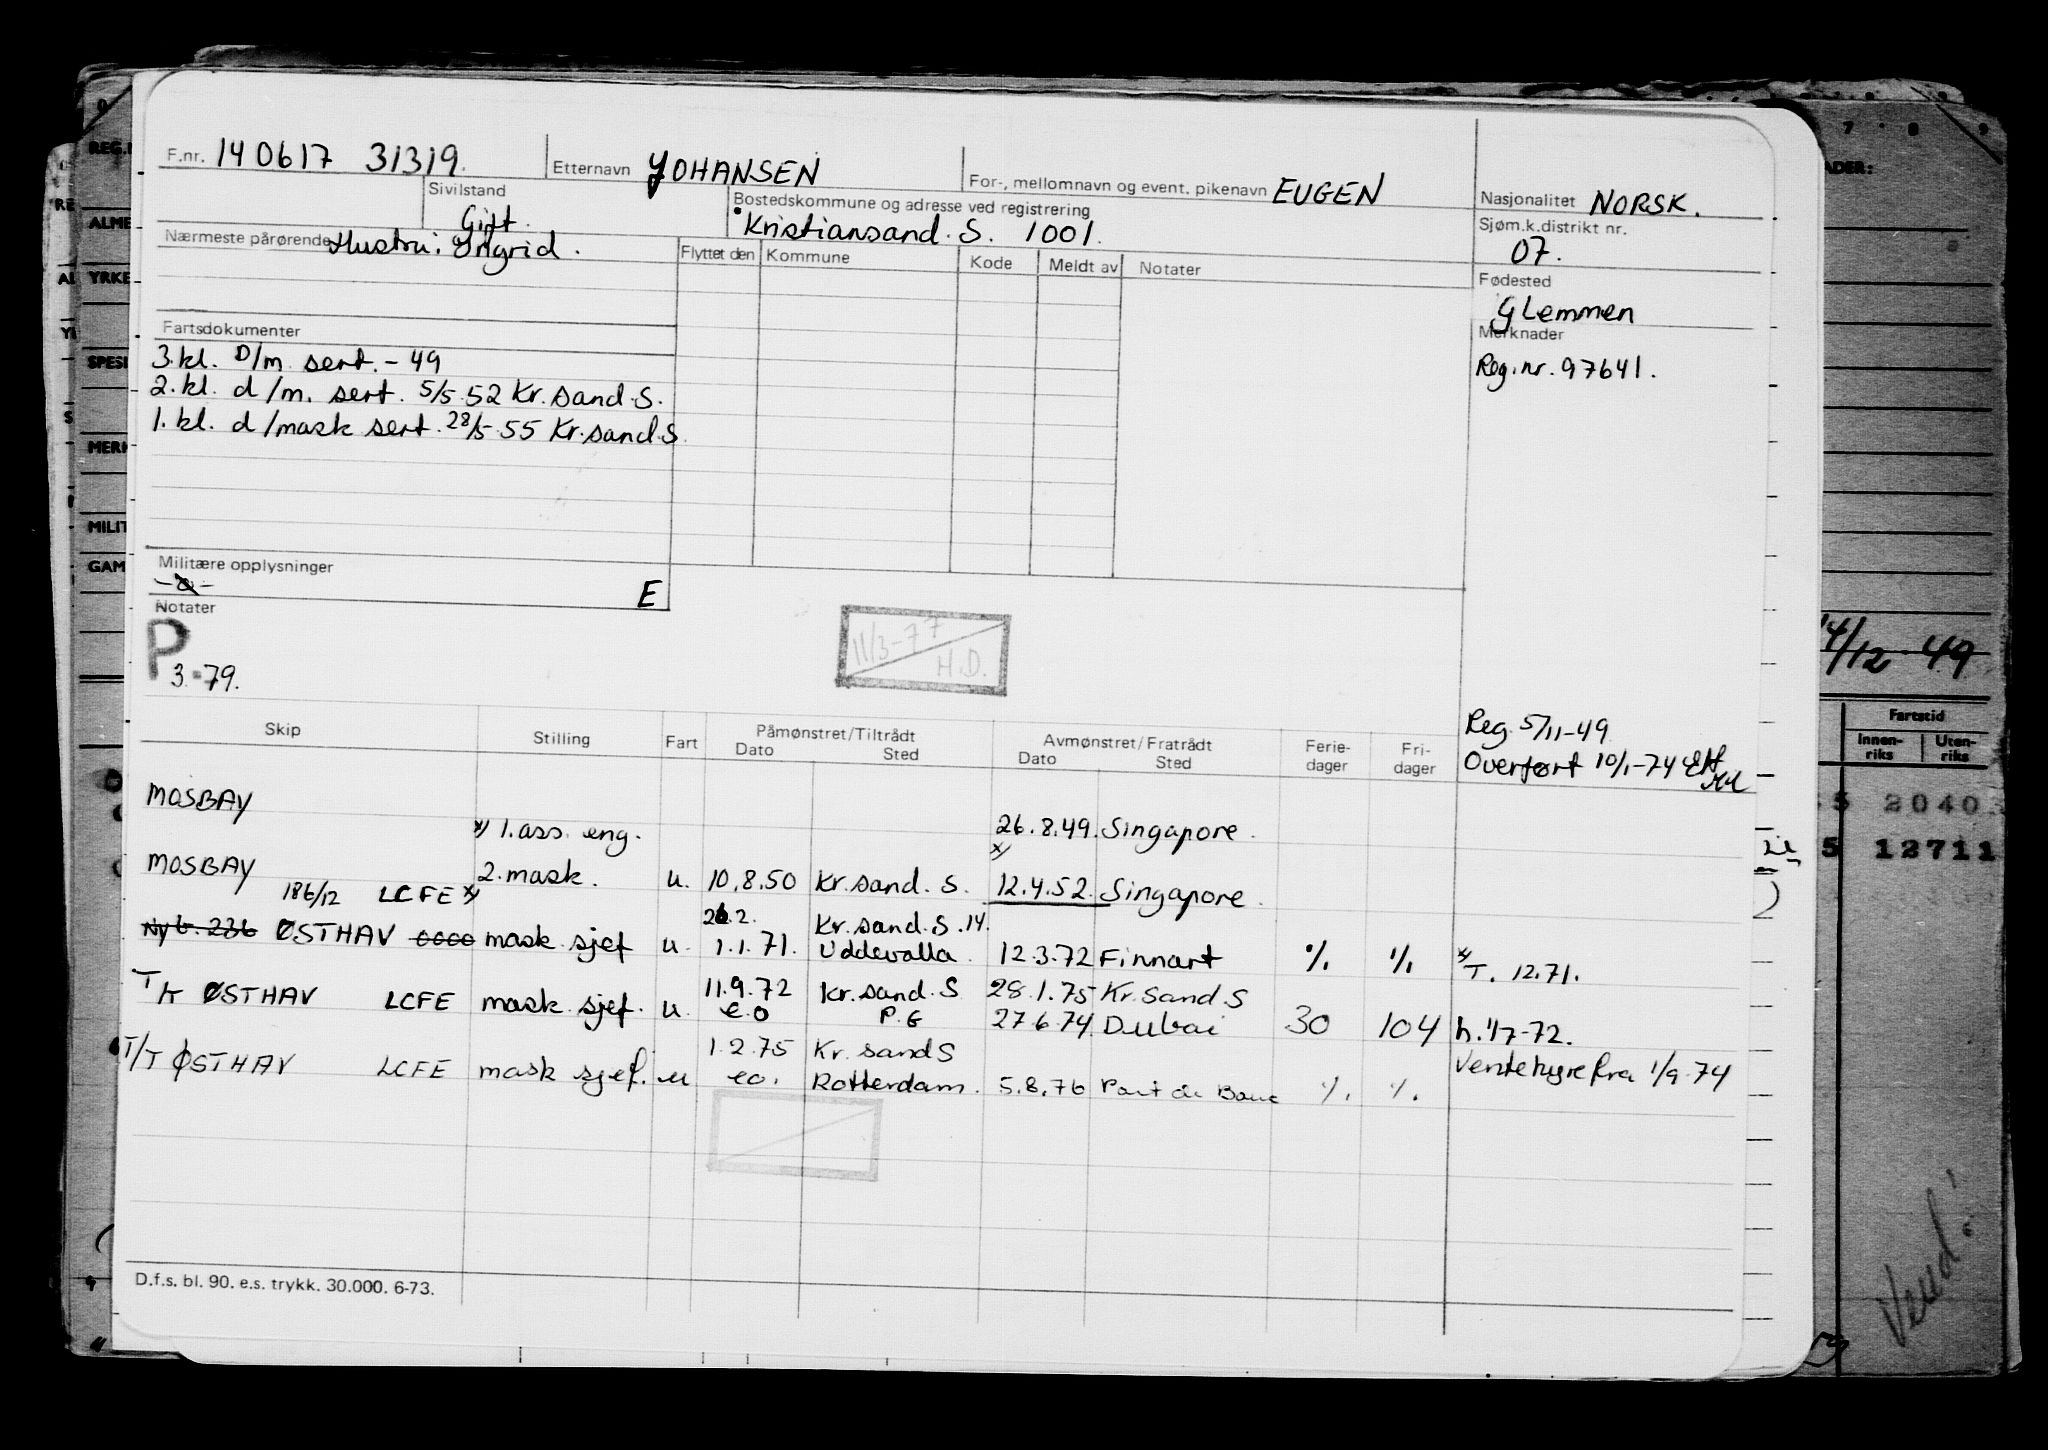 F.nr. 140617 31319. Etternavn JOHANSEN For-, mellomnavn og event. pikenavn EUGEN Nasjonalitet NORSK.
Sivilstand Gift. Bostedskommune og adresse ved registrering Kristiansand. S. 1001. Sjøm.k.distrikt nr. 07.
Nærmeste pårørende Hustru: Ingrid. Flyttet den Kommune Kode Meldt av Notater
Fødested
Glemmen
Merknader
Reg.nr. 97641.
Fartsdokumenter
3.kl. D/m sert. - 49
2.kl. d/m. sert. 5/5.52 Kr.sand.S.
1.kl. d/mask sert. 28/5.55 Kr.sand.S
Militære opplysninger
E
Notater
P
3.-79.
11/3-77
H.D.
Skip Stilling Fart Påmønstret/Tiltrådt Avmønstret/Fratrådt Ferie- Fri-
Dato Sted Dato Sted dager dager
Reg. 5/11-49
Overført 10/1-74
MOSBAY
x) 1.ass. eng. 26.8.49. Singapore.
x)
MOSBAY 2.mask. u. 10.8.50 Kr.sand.S. 12.4.52. Singapore.
186/12 LCFE x)
2. Kr.sand.S.14.
Nyb. 236 ØSTHAV 0000 mask.sjef u. 1.1.71. Uddevalla. 12.3.72 Finnart % % x) T. 12.71.
11.9.72 Kr.sand.S 28.1.75 Kr.sand.S
T/T ØSTHAV LCFE mask.sjef. u. e.o P.G 27.6.74 Dubai 30 104 h.1/7-72.
1.2.75 Kr.sandS
T/T ØSTHAV LCFE mask sjef. u eo. Rotterdam. 5.8.76 Port de Bouc % %. Ventehyre fra 1/9-74
D.f.s. bl. 90. e.s. trykk. 30.000. 6-73.
REG.
ALME
YRKE
SPESI
MERK
MILIT
GAM
7 8 9
ADER:
14/12 49
Fartstid
Innen-riks Uten-riks
5 2040
5 12711
Vend!